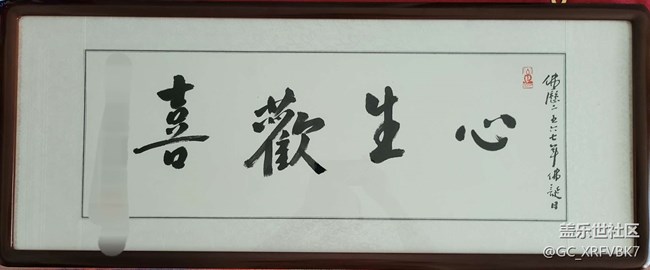 佛曆二五六七年佛誕日
心生歡喜
盖乐世社区
@GC_XRFVBK7